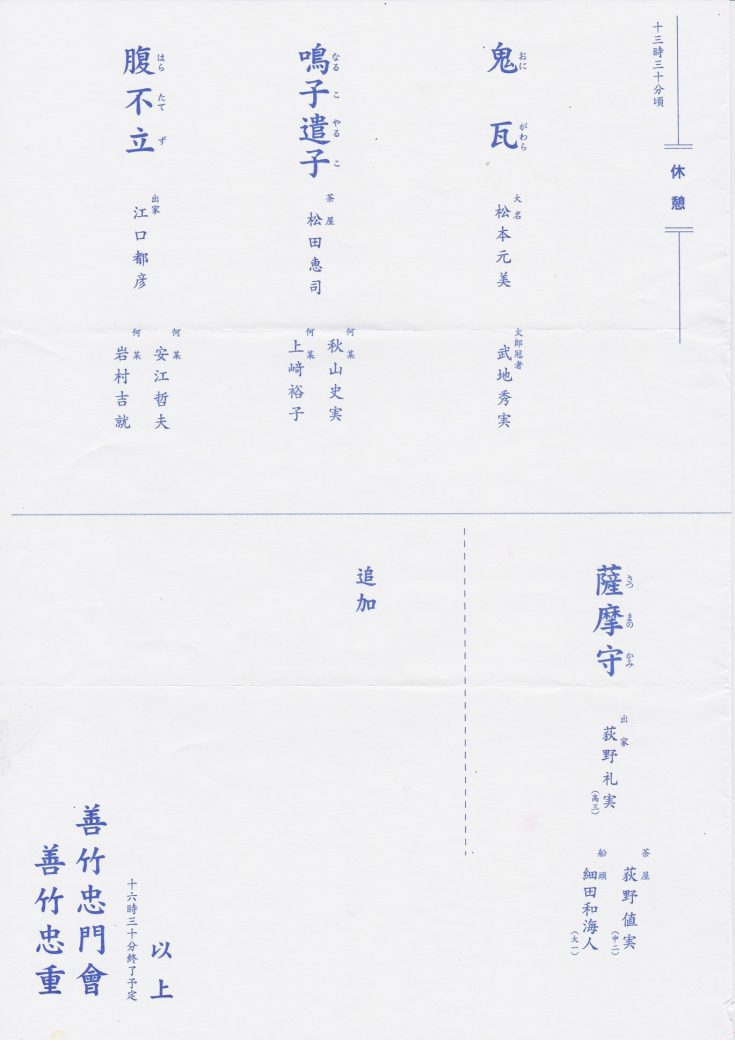 十三時三十分頃
休憩
鬼瓦
おに がわら
大名
松本元美
太郎冠者
武地秀実
鳴子遣子
なる こ やる こ
茶屋
松田恵司
何某
秋山史実
何某
上﨑裕子
腹不立
はら たて ず
出家
江口都彦
何某
安江哲夫
何某
岩村吉就
薩摩守
さつ まの かみ
出家
荻野礼実
(高三)
茶屋
荻野值実
(中二)
船頭
細田和海人
(大一)
追加
以上
十六時三十分終了予定
善竹忠門會
善竹忠重